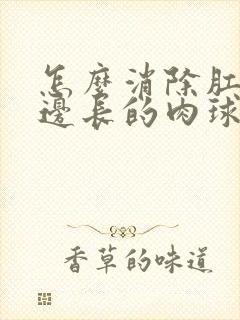 怎麼消除肛
邊長的肉球
香草的味道